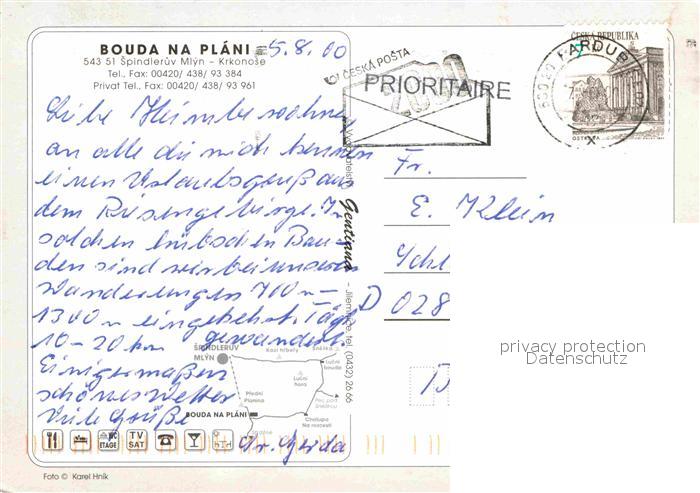 BOUDA NA PLÁNI
543 51 Špindlerův Mlýn - Krkonoše
Tel., Fax: 00420/ 438/ 93 384
Privat Tel., Fax: 00420/ 438/ 93 961
5.8.00
Liebe Heimbewohner
an alle die mich kennen
einen Urlaubsgruß aus
dem Riesengebirge. In
solchen hübschen Bau-
den sind wir bei unseren
Wanderungen 700 m -
1300 m eingekehrt. Tägl.
10-20 km gewandert.
Einigermaßen
schönes Wetter
Viele Grüße
Fr. Gerda
ČESKÁ POŠTA
2000
PRIORITAIRE
ČESKÁ REPUBLIKA
PARDUB
OSTRAVA
Fr.
E. Klein
Schl
D 028
Gentiana - Jilemnice Tel. (0432) 26 66
ŠPINDLERŮV
MLÝN
Kozí hřbety
Luční
bouda
Luční
hora
Přední
Planina
Pec pod
Sněžkou
BOUDA NA PLÁNI
Chalupa
Na rozcestí
WC
ETAGE
TV
SAT
Foto © Karel Hník
privacy protection
Datenschutz